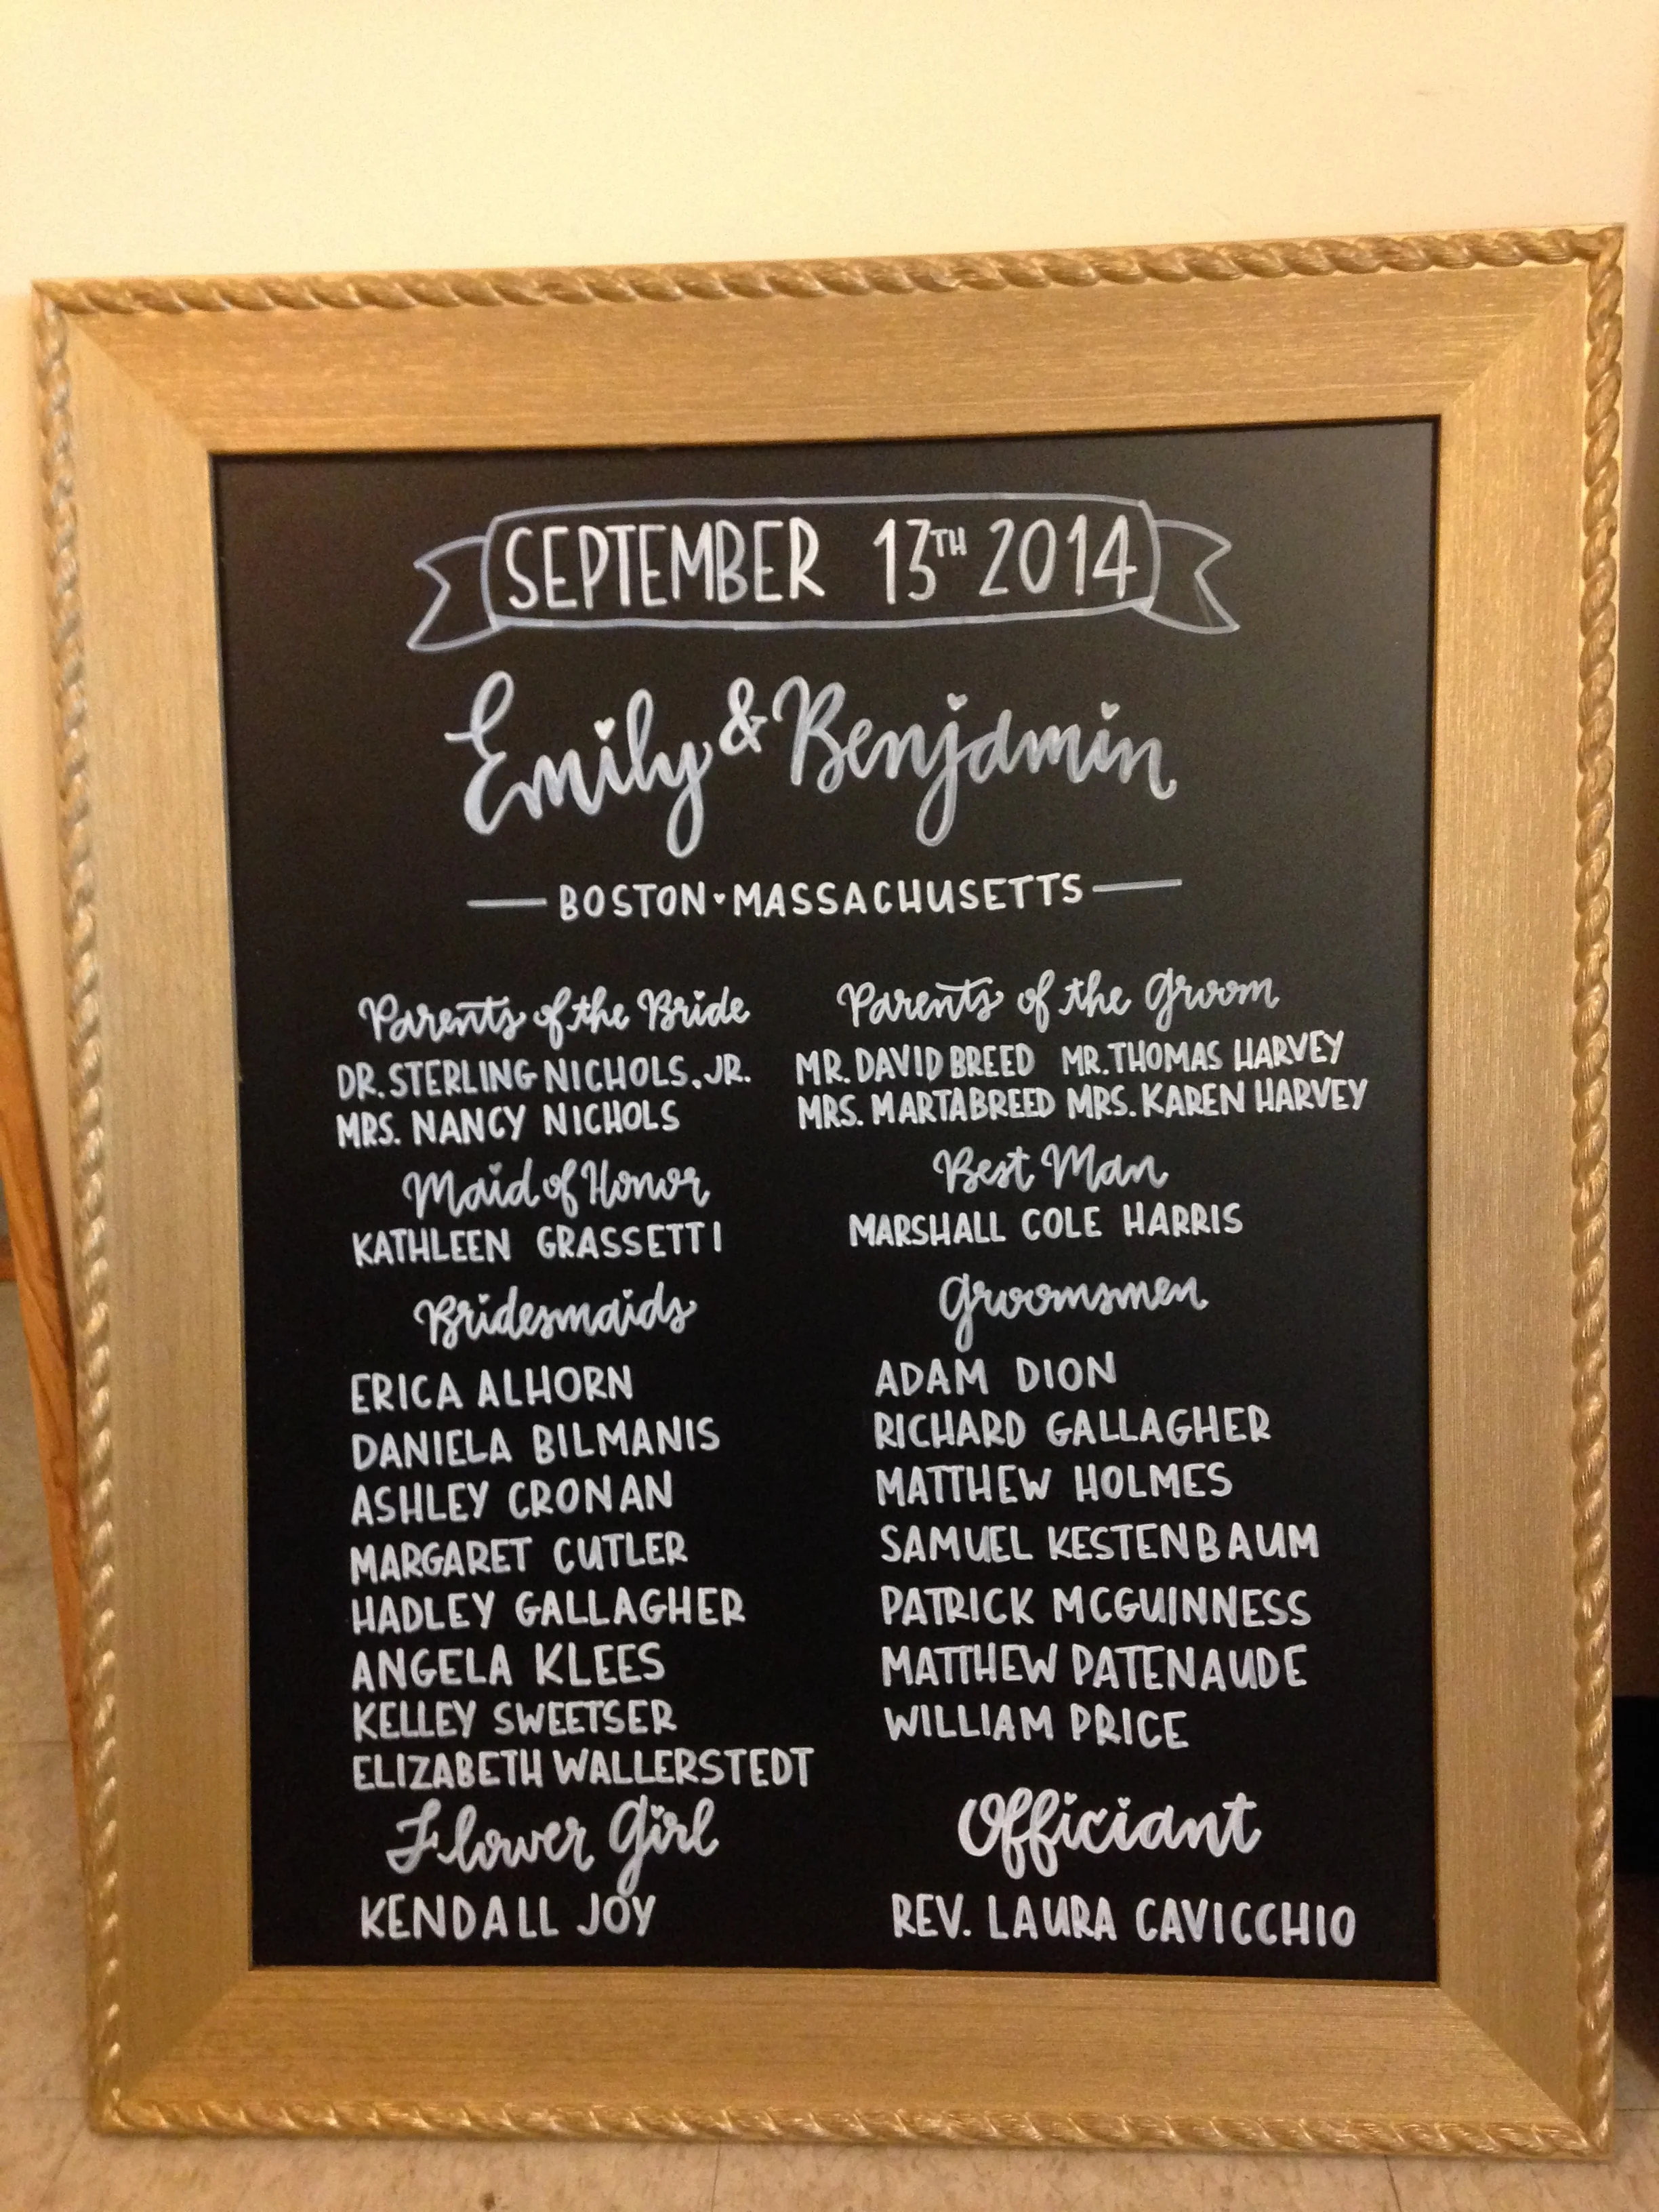 SEPTEMBER 13TH 2014
Emily & Benjamin
BOSTON ♥ MASSACHUSETTS
Parents of the Bride
DR. STERLING NICHOLS, JR.
MRS. NANCY NICHOLS
Maid of Honor
KATHLEEN GRASSETTI
Bridesmaids
ERICA ALHORN
DANIELA BILMANIS
ASHLEY CRONAN
MARGARET CUTLER
HADLEY GALLAGHER
ANGELA KLEES
KELLEY SWEETSER
ELIZABETH WALLERSTEDT
Flower Girl
KENDALL JOY
Parents of the Groom
MR. DAVID BREED MR. THOMAS HARVEY
MRS. MARTA BREED MRS. KAREN HARVEY
Best Man
MARSHALL COLE HARRIS
Groomsmen
ADAM DION
RICHARD GALLAGHER
MATTHEW HOLMES
SAMUEL KESTENBAUM
PATRICK MCGUINNESS
MATTHEW PATENAUDE
WILLIAM PRICE
Officiant
REV. LAURA CAVICCHIO